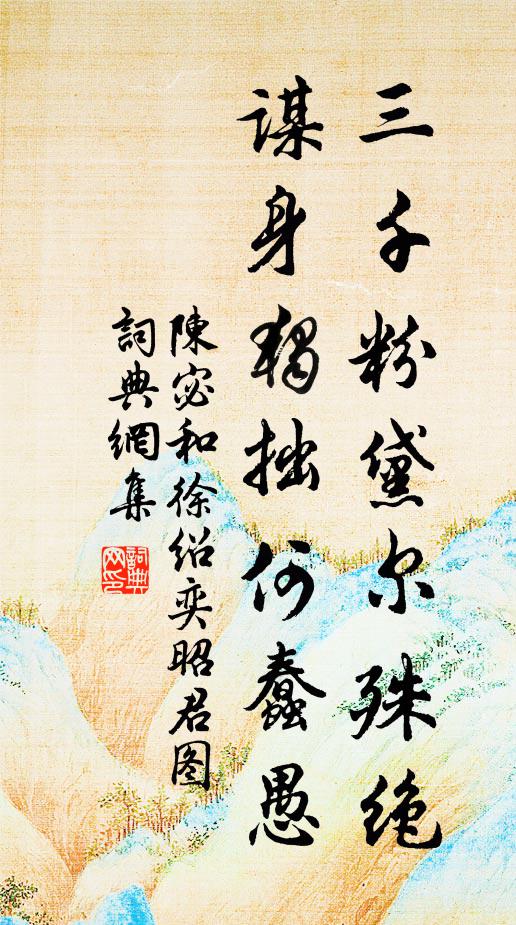 三千粉黛尔殊绝
谋身独拙何蠢愚
陳宓和徐绍奕昭君图
詞典網集
詞典
网印